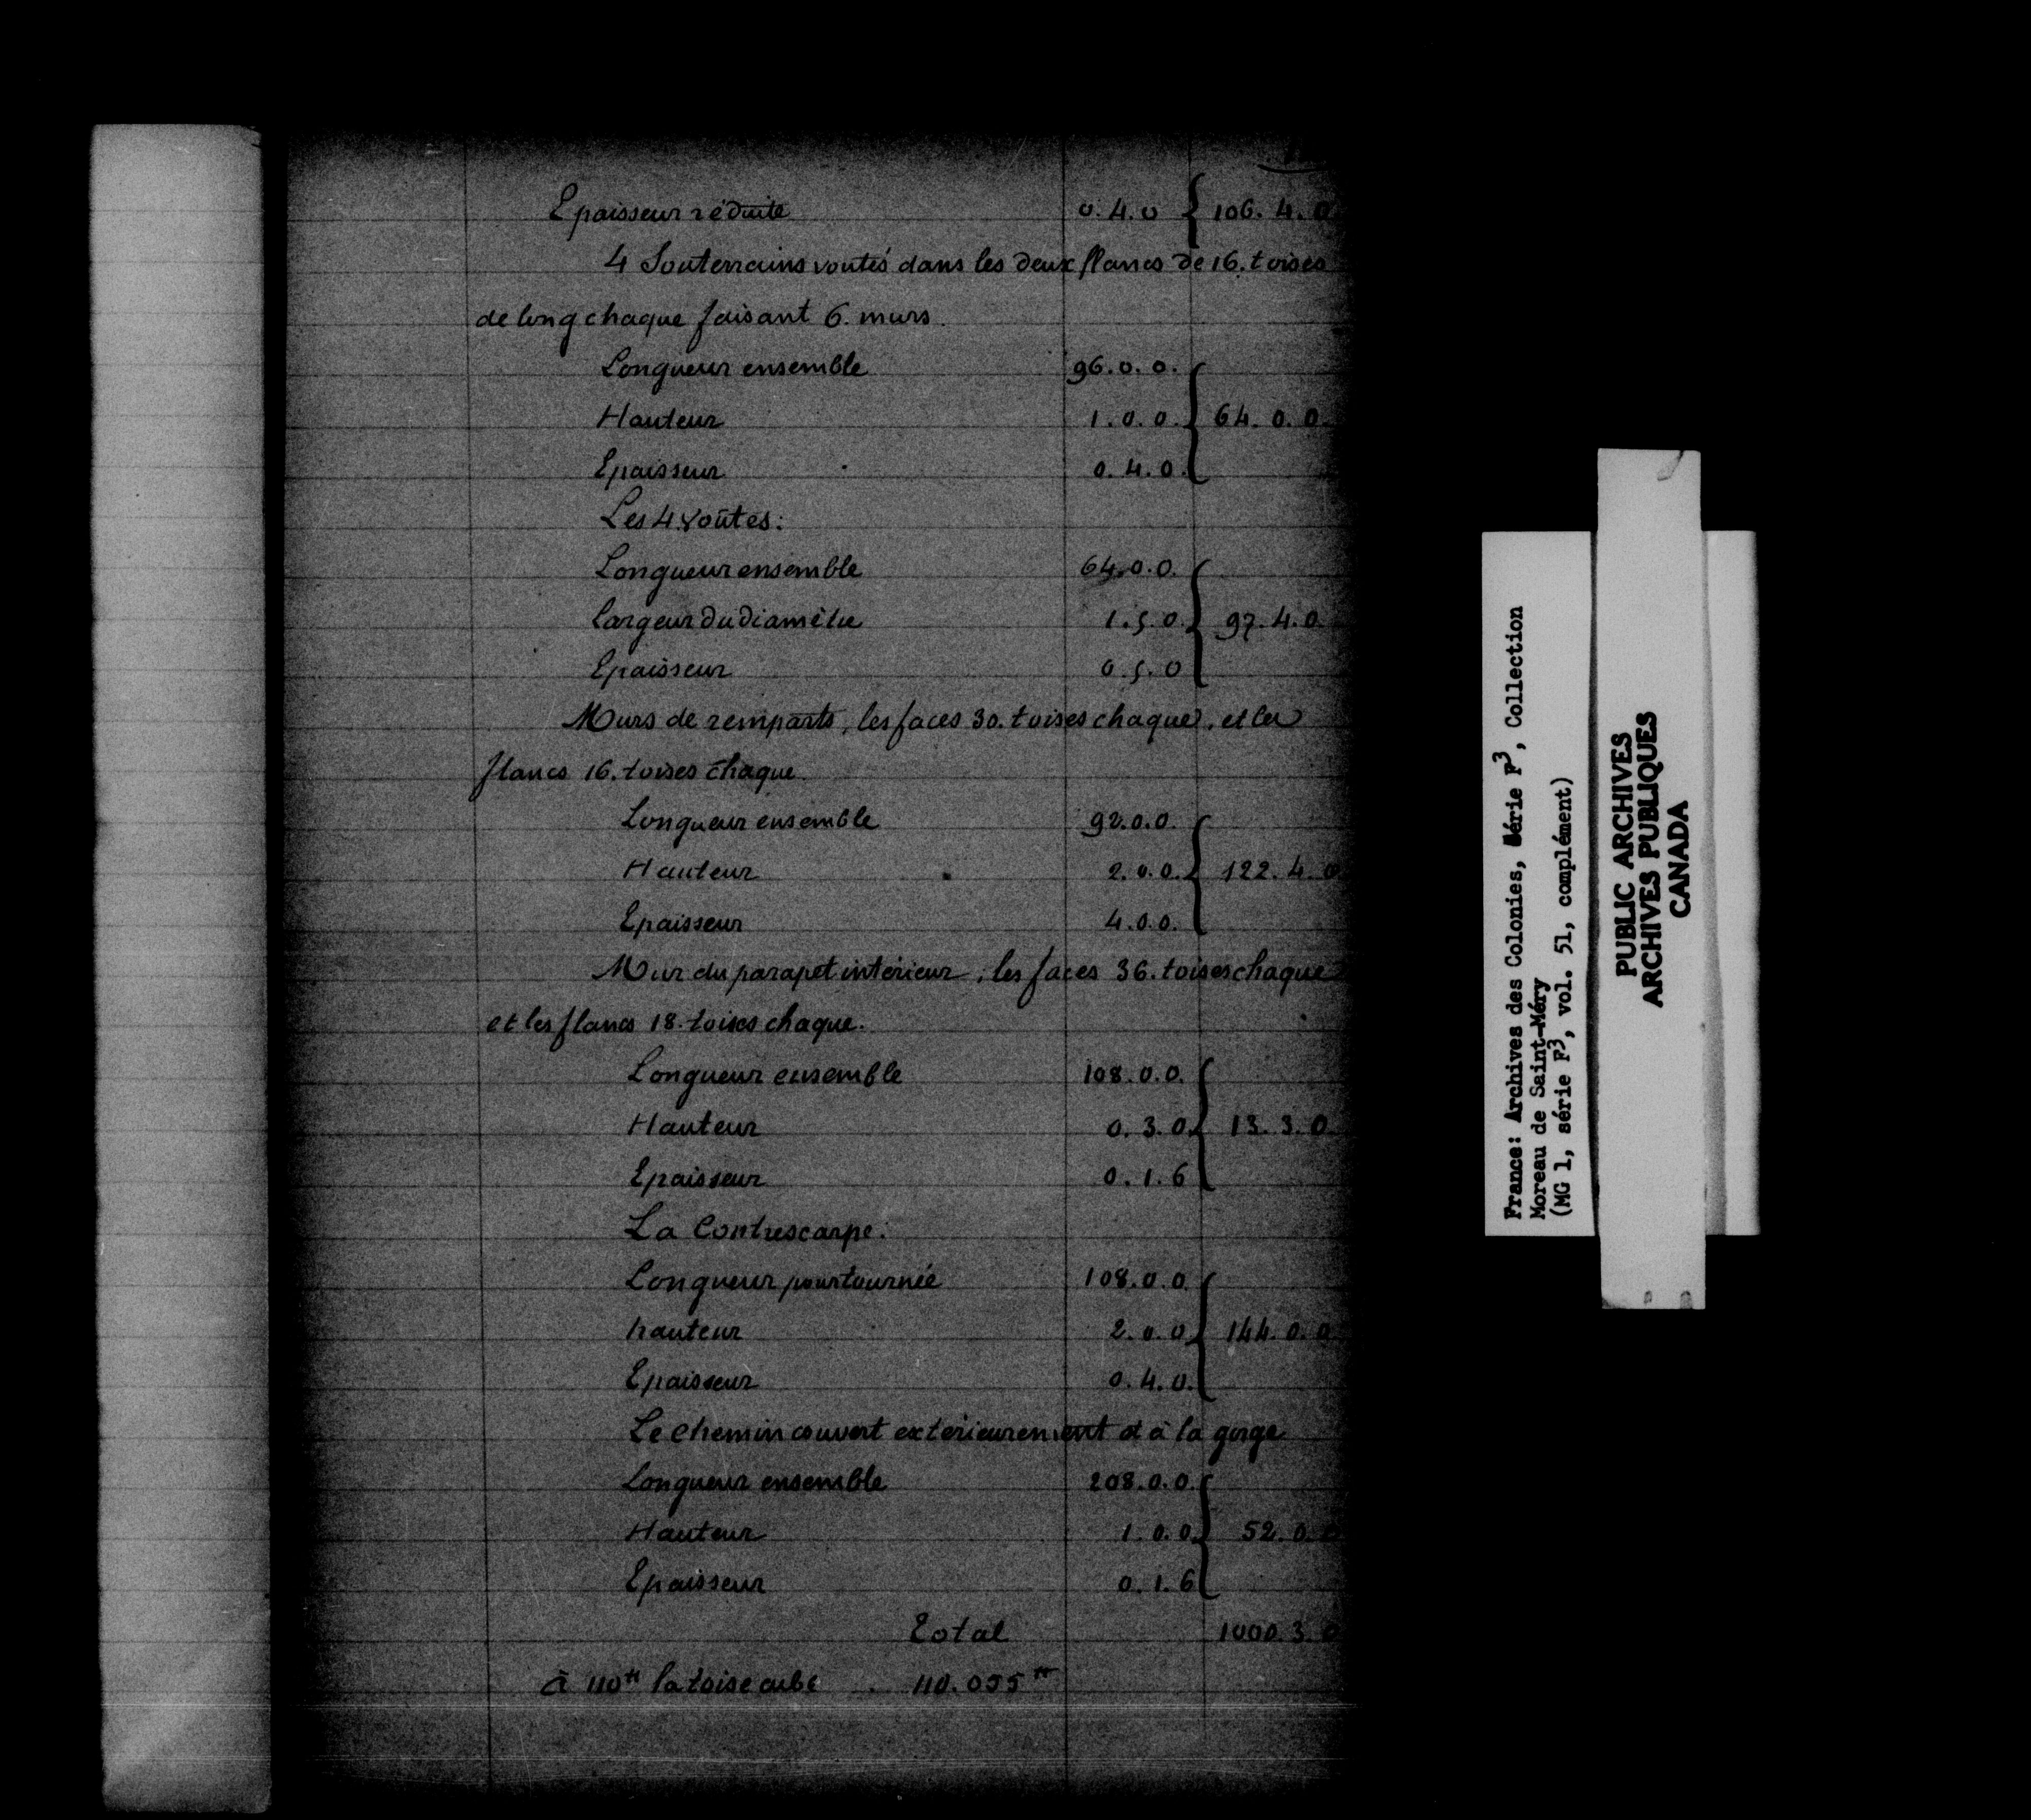 Epaisseur réduite 0.4.0 { 106.4.0
4 Souterrains voutés dans les deux flancs de 16. toises
de long chaque faisant 6. murs.
Longueur ensemble 96.0.0.
Hauteur 1.0.0. { 64.0.0.
Epaisseur 0.4.0.
Les 4 voûtes:
Longueur ensemble 64.0.0.
Largeur du diamètre 1.5.0. { 97.4.0.
Epaisseur 0.5.0
Murs de remparts, les faces 30. toises chaque, et les
flancs 16. toises chaque.
Longueur ensemble 92.0.0.
Hauteur 2.0.0. { 122.4.0
Epaisseur 4.0.0.
Mur du parapet intérieur, les faces 36. toises chaque
et les flancs 18. toises chaque.
Longueur ensemble 108.0.0.
Hauteur 0.3.0. { 13.3.0
Epaisseur 0.1.6
La Contrescarpe:
Longueur pourtournée 108.0.0
hauteur 2.0.0 { 144.0.0
Epaisseur 0.4.0.
Le chemin couvert extérieurement et à la gorge
Longueur ensemble 208.0.0.
Hauteur 1.0.0. { 52.0.0
Epaisseur 0.1.6
Total 1000.3.0
à 110 ₶ la toise cube . 110.055 ₶
France: Archives des Colonies, Série F3, Collection
Moreau de Saint-Méry
(MG 1, série F3, vol. 51, complément)
PUBLIC ARCHIVES
ARCHIVES PUBLIQUES
CANADA